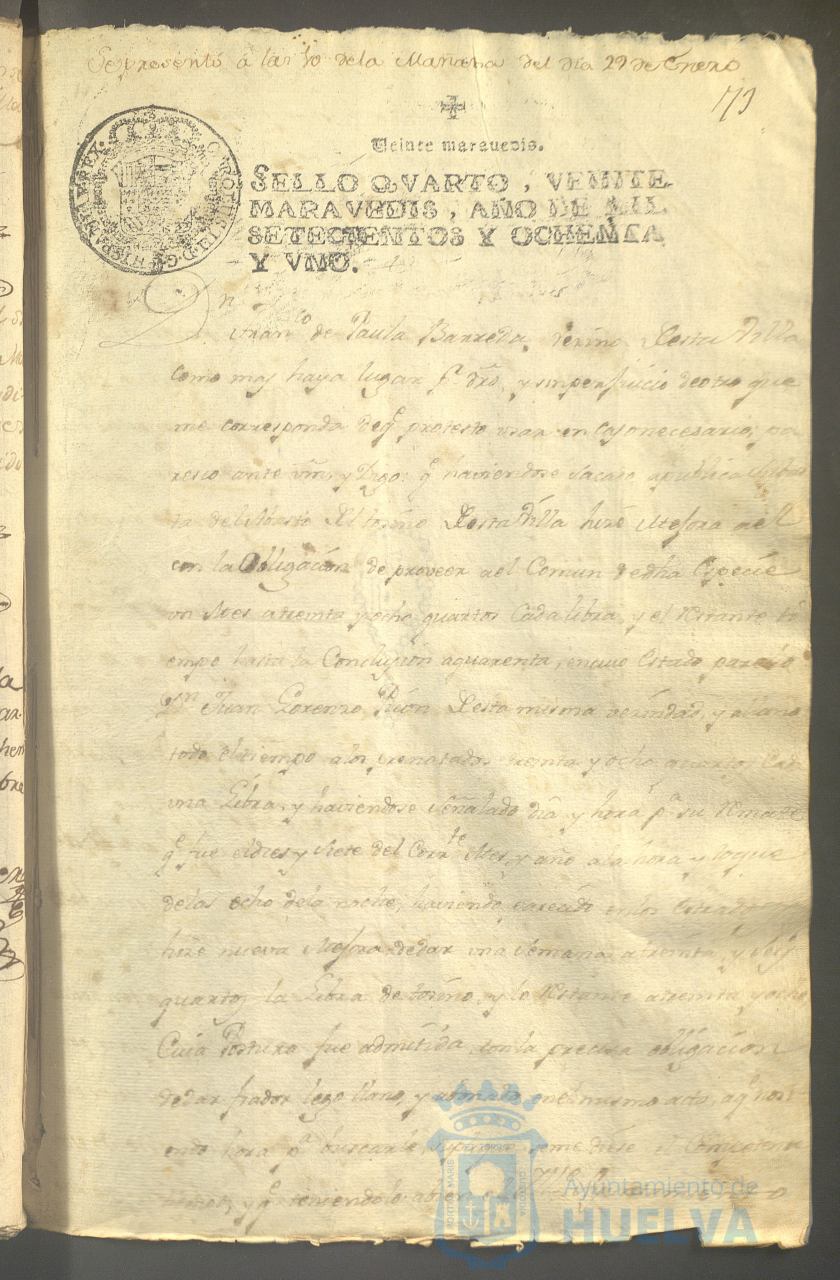 Se presentó a las 10 de la Mañana del dia 29 de Enero
173
Veinte maravedis.
SELLO QVARTO, VEINTE
MARAVEDIS, AÑO DE MIL
SETECIENTOS Y OCHENTA
Y VNO.
CAROLUS III D. G. HISPANIAR. REX.
Dn Franco de Paula Barreda, vezino Desta Villa
como mas haya lugar pr dro, y sin perjuicio de otro que
me corresponda de qe protesto usar en caso necesario, pa
resco ante vm, y Digo: qe haviendose sacado a publica subas
ta del Abasto del tosino Desta Villa hize Mejora a el
con la Obligacion de proveer a el Comun dedha Especie
un Mes a treinta y ocho quartos Cada libra, y el restante ti
empo hasta la Conclusion a quarenta, en cuio Estado parecio
Dn Juan Lorenzo Desta misma vezindad, y
todo el tiempo a los treinta y ocho quartos Cad
una Libra, y haviendose señalado dia y hora pa su Remate
qe fue el dies y siete del Corrte Mes, y año a la hora y toque
de las ocho de la noche, haviendo en los Estrados
hize nueva Mejora de dar una semana a treinta y seis
quartos la Libra de tosino, y lo restante a treinta y ocho
Cuia Postura fue admitida con la precisa obligacion
de dar fiador lego llano, y abonado en el mismo acto, a qe no si
endo hora pa buscarle, se me diese el Competente
y qe teniendolo a bien
PORTUS MARIS
CUSTODIA
Ayuntamiento de
HUELVA